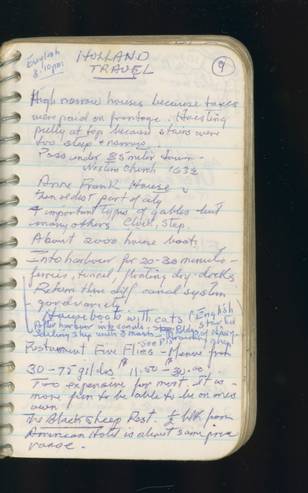 English
8:10pm
HOLLAND
TRAVEL
9
High narrow houses because taxes
were paid on frontage. Hoisting
pully at top because stairs were
too steep + narrow.
Pass under 85 meter tower -
Western Church 1632
Anne Frank House
oldest part of city
4 important types of gables but
many others. Clock, step.
About 2000 house boats
Into harbour for 20-30 minute -
ferries, tunnel, floating dry-docks
Return thru diff canal system
good variety
House boats with cats (English
After harbour into canals
sailing ship with 3 masts
Restaurant Five Flies - Menus from
30-75 gilders 11.50 - 30.00
Too expensive for most. It is
more fun to be able to be on ones
own
The Black Sheep Rest. ½ blk from
American Hotel is about same price
range.